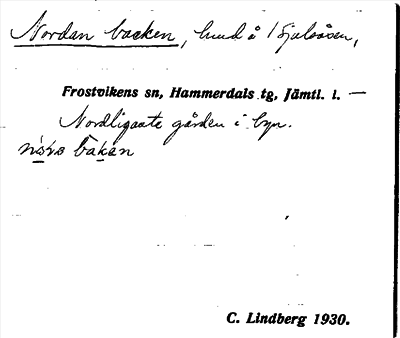 Nordan backen, hemd å Gjalsåsen,
Frostvikens sn, Hammerdals tg, Jämtl. l. —
Nordligaste gården i byn.
baken
C. Lindberg 1930.